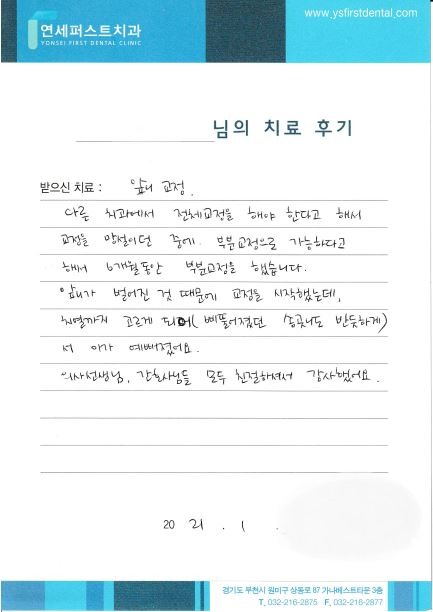 연세퍼스트치과
YONSEI FIRST DENTAL CLINIC
www.ysfirstdental.com
님의 치료 후기
받으신 치료 : 앞니 교정.
다른 치과에서 전체교정을 해야 한다고 해서
교정을 망설이던 중에. 부분교정으로 가능하다고
해서 6개월동안 부분교정을 했습니다.
앞니가 벌어진 것 때문에 교정을 시작했는데,
치열까지 고르게 되어(삐뚤어졌던 송곳니도 반듯하게)
서 아가 예뻐졌어요.
의사선생님, 간호사님들 모두 친절하셔서 감사했어요.
20 21 . 1 .
경기도 부천시 원미구 상동로 87 가나베스트타운 3층
T. 032-216-2875 F. 032-216-2877